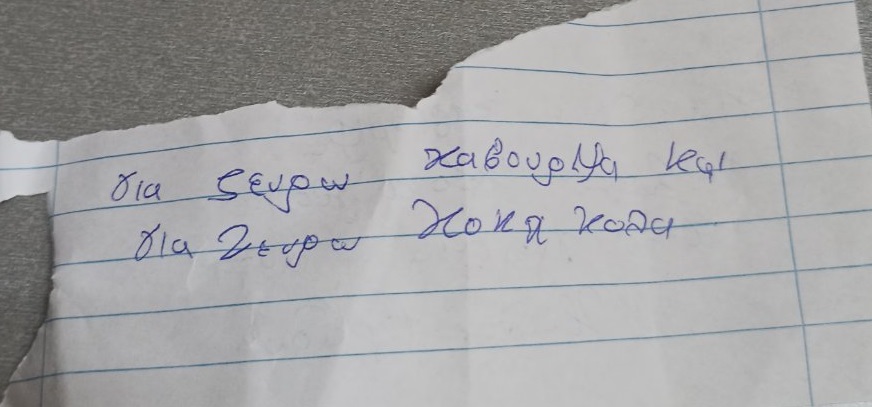 για 5ευρω καβουρμα και
για 2ευρω κοκα κολα